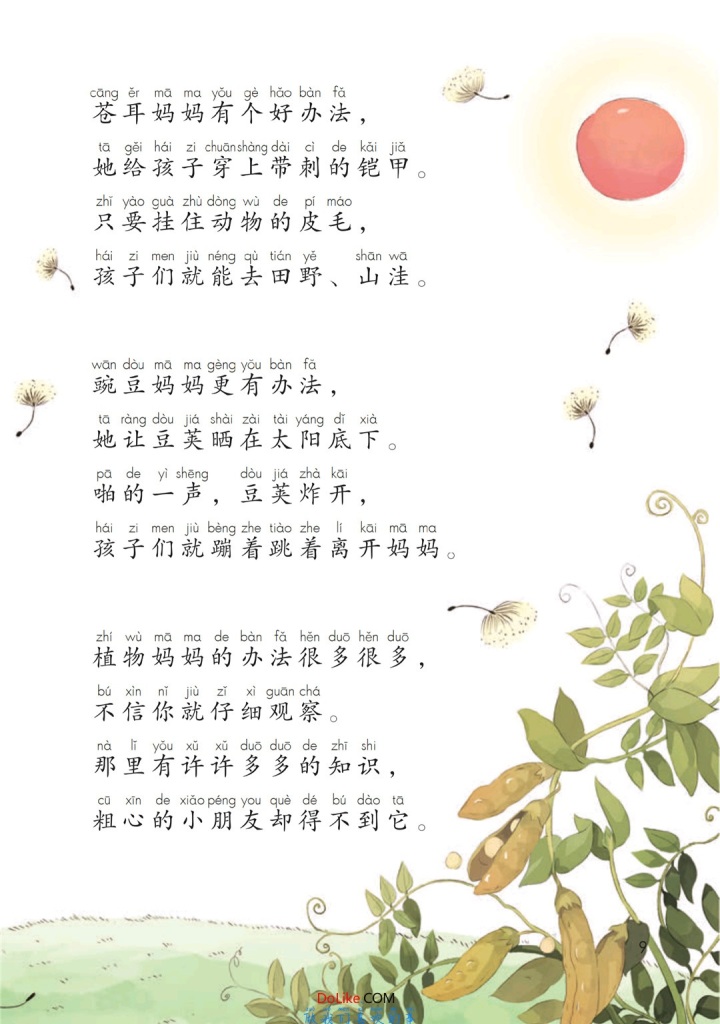 cāng ěr mā ma yǒu gè hǎo bàn fǎ
苍耳妈妈有个好办法，
tā gěi hái zi chuān shàng dài cì de kǎi jiǎ
她给孩子穿上带刺的铠甲。
zhǐ yào guà zhù dòng wù de pí máo
只要挂住动物的皮毛，
hái zi men jiù néng qù tián yě shān wā
孩子们就能去田野、山洼。
wān dòu mā ma gèng yǒu bàn fǎ
豌豆妈妈更有办法，
tā ràng dòu jiá shài zài tài yáng dǐ xià
她让豆荚晒在太阳底下。
pā de yì shēng dòu jiá zhà kāi
啪的一声，豆荚炸开，
hái zi men jiù bèng zhe tiào zhe lí kāi mā ma
孩子们就蹦着跳着离开妈妈。
zhí wù mā ma de bàn fǎ hěn duō hěn duō
植物妈妈的办法很多很多，
bú xìn nǐ jiù zǐ xì guān chá
不信你就仔细观察。
nà lǐ yǒu xǔ xǔ duō duō de zhī shi
那里有许许多多的知识，
cū xīn de xiǎo péng you què dé bú dào tā
粗心的小朋友却得不到它。
9
DoLike.COM